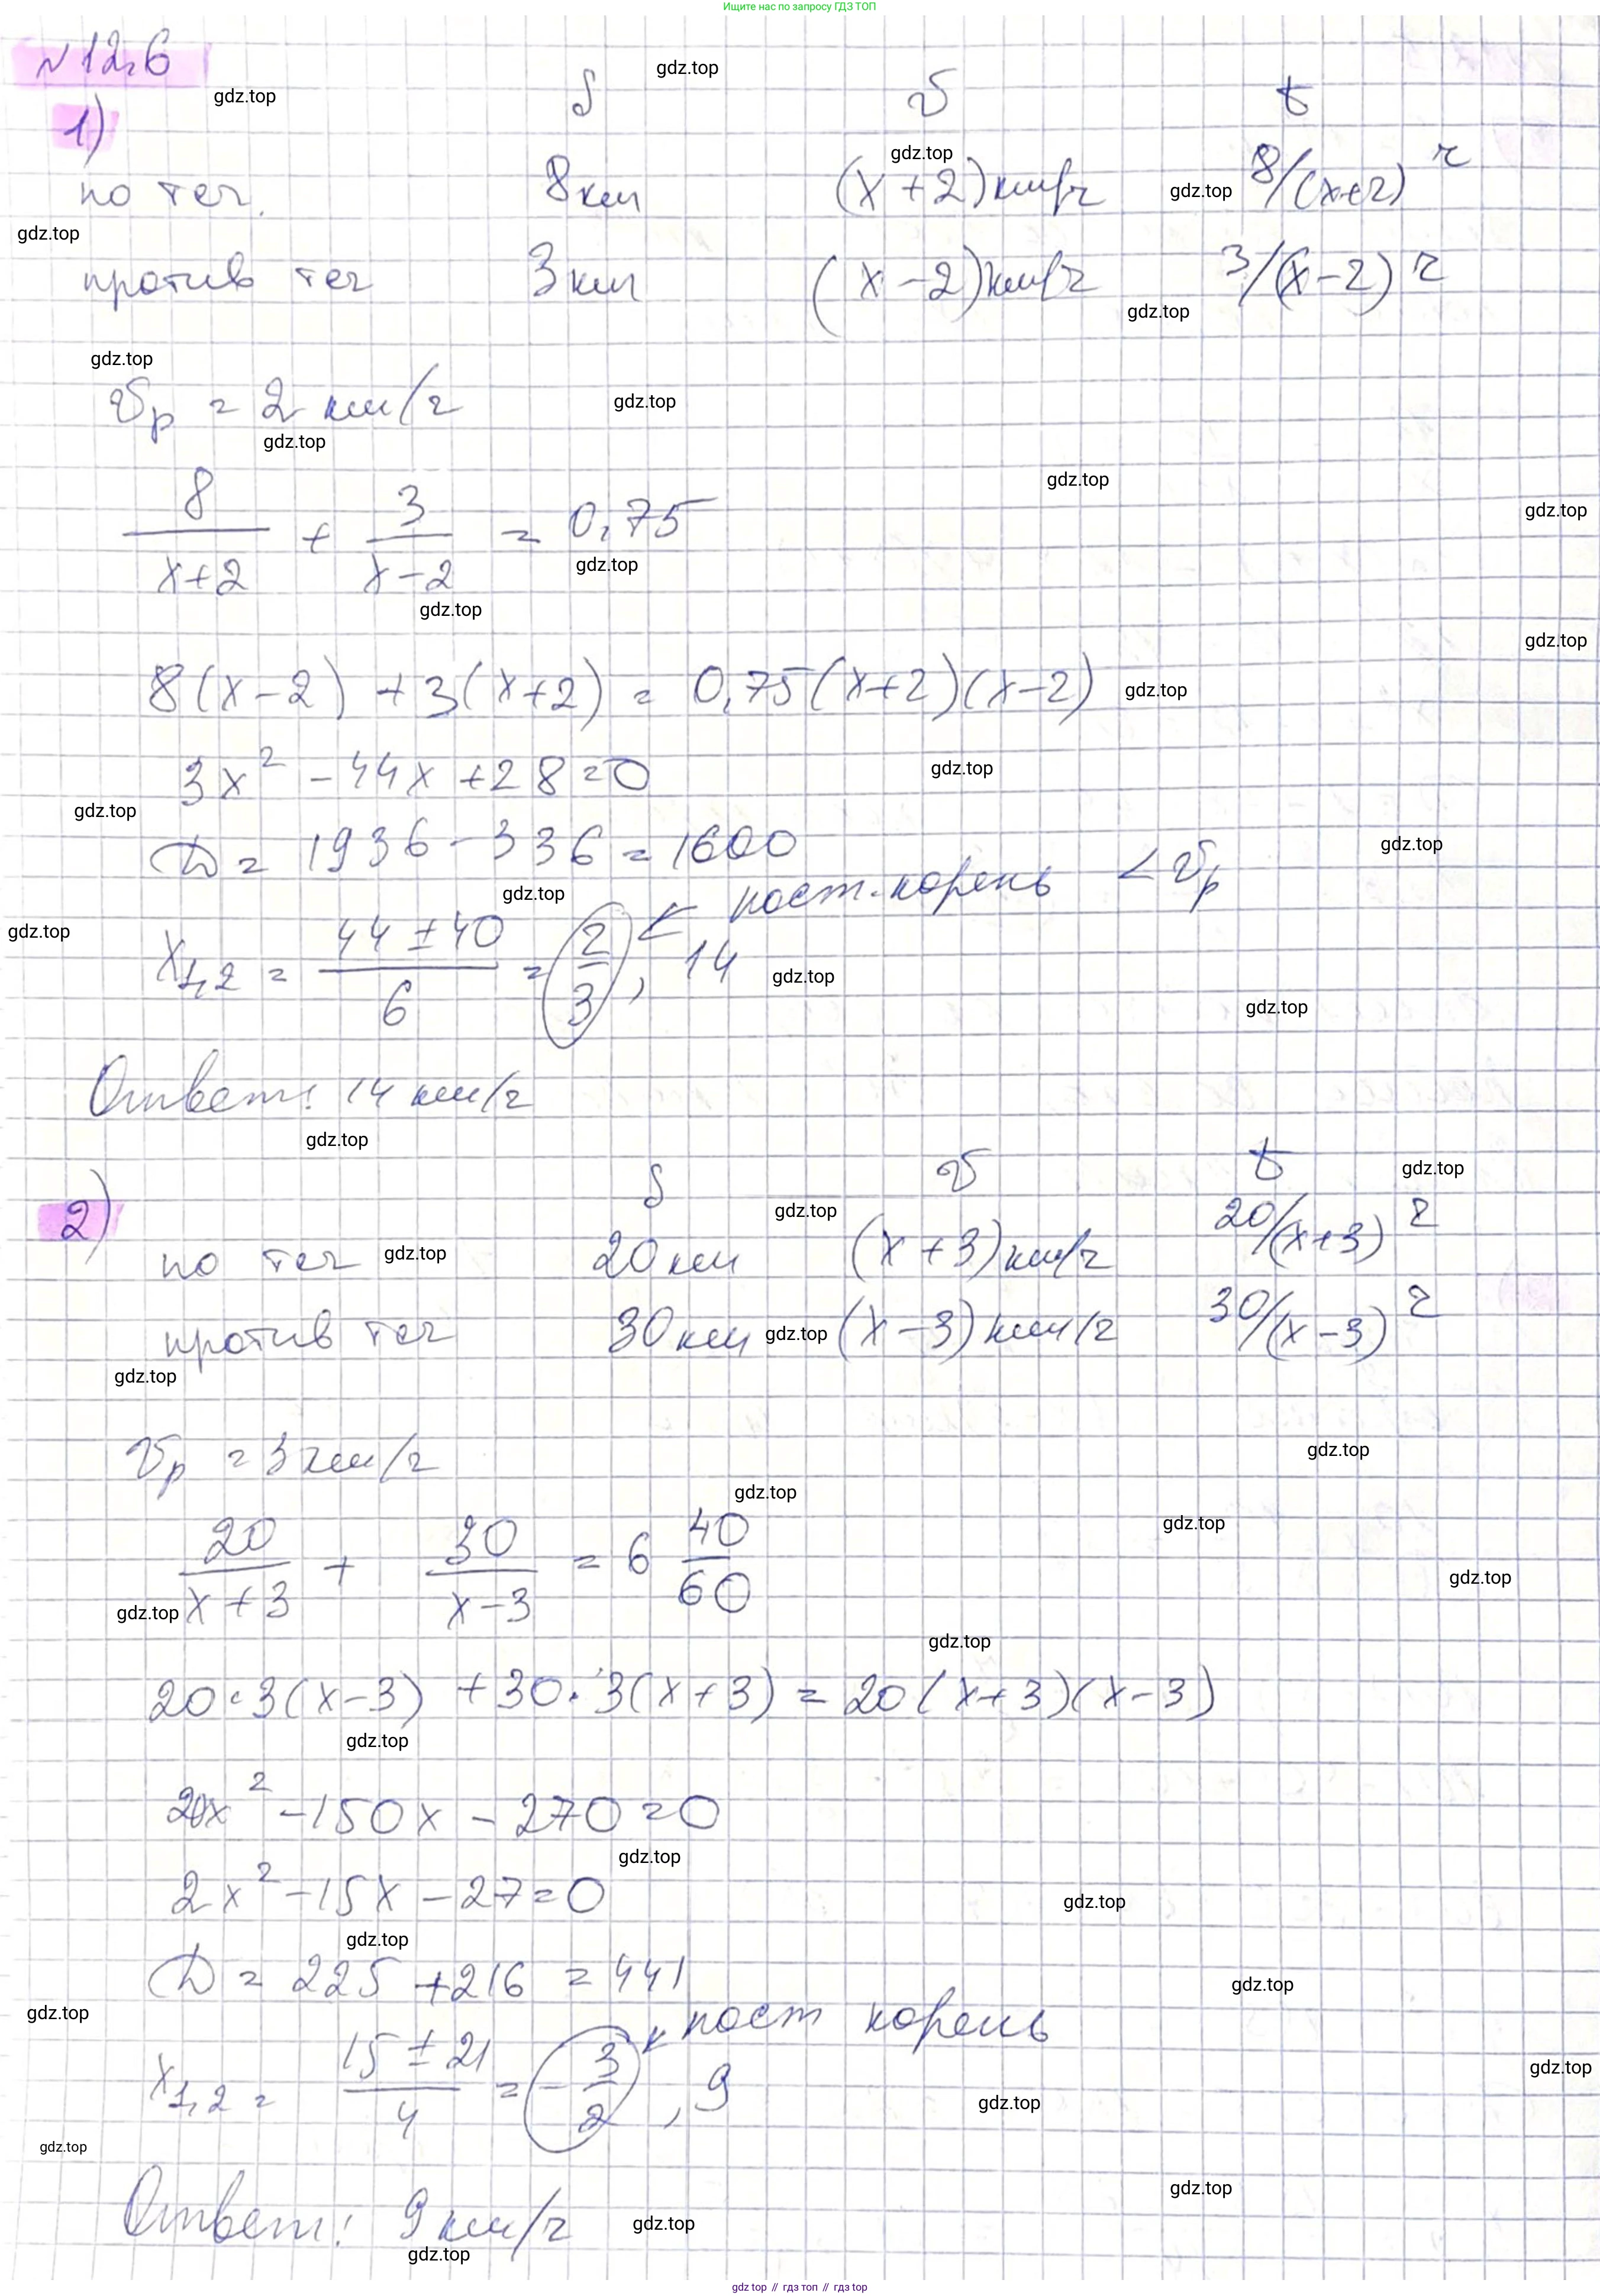 Ищите нас по запросу ГДЗ ТОП
№12.6
gdz.top
gdz.top
1)
S v t
gdz.top
по теч. 8 км (x+2) км/ч gdz.top 8/(x+2) ч
gdz.top
против теч 3 км (x-2) км/ч 3/(x-2) ч
gdz.top
gdz.top
vр = 2 км/ч gdz.top
gdz.top
gdz.top
gdz.top
8/(x+2) + 3/(x-2) = 0,75
gdz.top
gdz.top
gdz.top
8(x-2) + 3(x+2) = 0,75(x+2)(x-2) gdz.top
3x² - 44x + 28 = 0 gdz.top
gdz.top
D = 1936 - 336 = 1600 gdz.top
gdz.top ← пост. корень < vр
gdz.top
x1,2 = (44 ± 40)/6 = 2/3, 14 gdz.top
gdz.top
Ответ: 14 км/ч
gdz.top
2) S v t gdz.top
gdz.top
по теч gdz.top 20 км (x+3) км/ч 20/(x+3) ч
против теч 30 км gdz.top (x-3) км/ч 30/(x-3) ч
gdz.top
vр = 3 км/ч gdz.top
gdz.top
gdz.top
20/(x+3) + 30/(x-3) = 6 40/60
gdz.top
gdz.top
gdz.top
20·3(x-3) + 30·3(x+3) = 20(x+3)(x-3)
gdz.top
20x² - 150x - 270 = 0
gdz.top
2x² - 15x - 27 = 0 gdz.top
gdz.top
D = 225 + 216 = 441 gdz.top
gdz.top ← пост корень
x1,2 = (15 ± 21)/4 = -3/2, 9 gdz.top
gdz.top
gdz.top
gdz.top
Ответ: 9 км/ч gdz.top
gdz.top
gdz top // гдз топ // гдз top